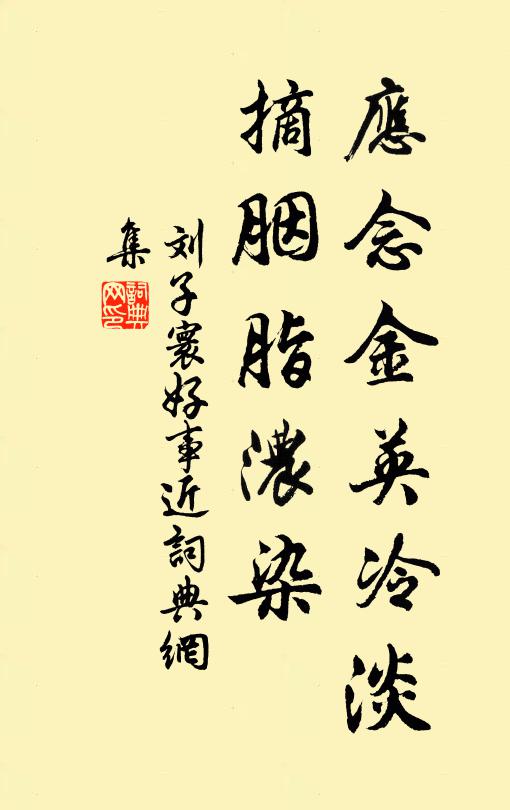 應念金英冷淡
摘胭脂濃染
刘子寰好事近詞典網
集
詞典
网印